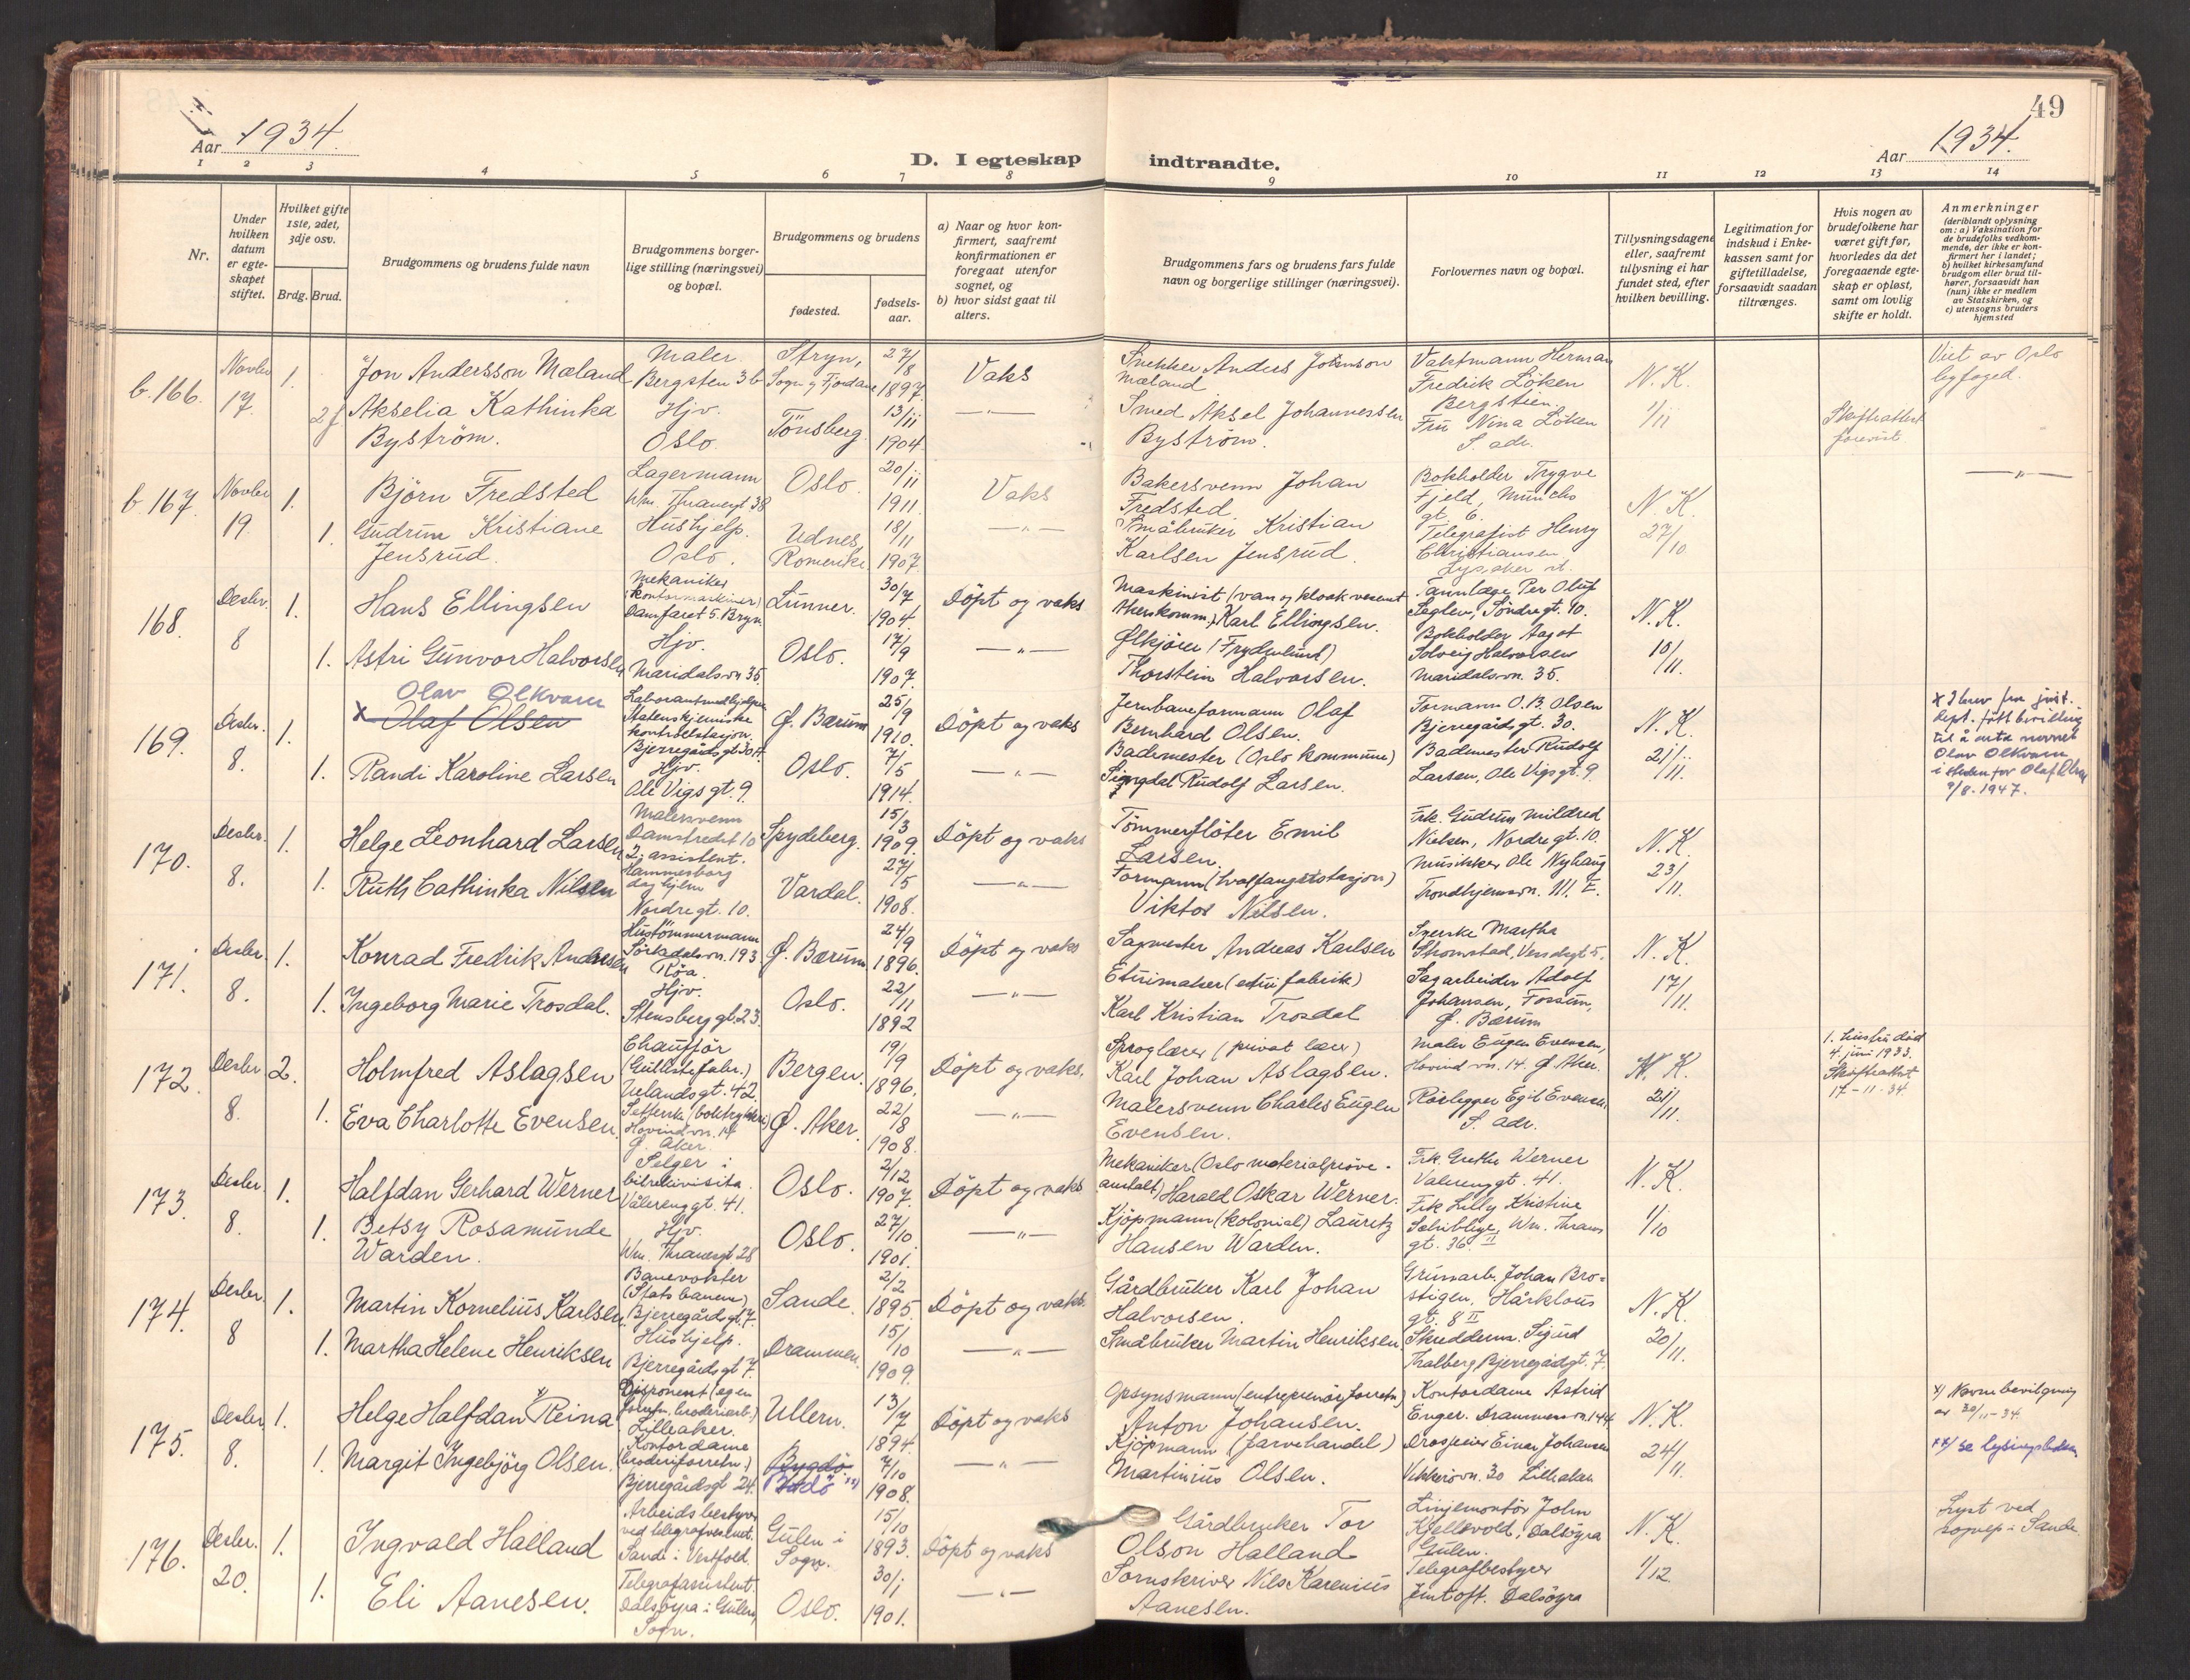 49
Aar 1934.
D. I egteskap
indtraadte.
Aar 1934.
1 2 3 4 5 6 7 8 9 10 11 12 13 14
Nr.
Under hvilken datum er egteskapet stiftet.
Hvilket gifte 1ste, 2det, 3dje osv.
Brdg. Brud.
Brudgommens og brudens fulde navn
Brudgommens borgerlige stilling (næringsvei) og bopæl.
Brudgommens og brudens
fødested.
fødsels-aar.
a) Naar og hvor konfirmert, saafremt konfirmationen er foregaat utenfor sognet, og
b) hvor sidst gaat til alters.
Brudgommens fars og brudens fars fulde navn og borgerlige stillinger (næringsvei).
Forlovernes navn og bopæl.
Tillysningsdagene eller, saafremt tillysning ei har fundet sted, efter hvilken bevilling.
Legitimation for indskud i Enkekassen samt for giftetilladelse, forsaavidt saadan tiltrænges.
Hvis nogen av brudefolkene har været gift før, hvorledes da det foregaaende egteskap er opløst, samt om lovlig skifte er holdt.
Anmerkninger
(deriblandt oplysning om: a) Vaksination for de brudefolks vedkommende, der ikke er konfirmert her i landet;
b) hvilket kirkesamfund brudgom eller brud tilhører, forsaavidt han (hun) ikke er medlem av Statskirken, og
c) utensogns bruders hjemsted
b. 166. Novbr 17. 1. Jon Andersson Mæland
Maler. Bergsten 3b
Stryn, Sogn og Fjordane
27/8 1897.
Vaks
Snekker Anders Johnson Mæland
Vaktmann Herman Fredrik Löken Bergstien.
N. K. 1/11
Viet av Oslo byfoged.
2f Akselia Kathinka Byström.
Hjv. Oslo.
Tönsberg.
13/11 1904
— " —
Smed Aksel Johannessen Byström.
Fru Nina Löken S. adr.
Skifteattest forevist
b 167 Novbr 19. 1. Björn Fredsted
Lagermann Wm. Thranesgt 38
Oslo.
20/11 1911.
Vaks
Bakersvenn Johan Fredsted.
Bokholder Trygve Fjeld, Munchs gt 6.
N. K. 27/10
— " —
1. Gudrun Kristiane Jensrud.
Hushjelp. Oslo.
Udnes Romerike.
18/11 1907.
— " —
Småbruker Kristian Karlsen Jensrud.
Telegrafist Henry Christiansen. Lysaker st.
168. Desbr. 8 1. Hans Ellingsen
Mekaniker (kontormaskiner) Damfaret 5. Bryn.
Lunner.
30/7 1904.
Döpt og vaks
Maskinist (van og kloakvesenet Akerskomm.) Karl Ellingsen.
Tannlæge Per Oluf Seglev, Söndregt. 10.
N. K. 10/11.
1. Astri Gunvor Halvorsen
Hjv. Maridalsvn 35.
Oslo.
17/9 1907.
— " —
Ølkjører (Frydenlund) Thorstein Halvorsen.
Bokholder Aagot Solveig Halvorsen Maridalsvn. 35.
169. Desbr. 8. 1. Olav Olkvam
x Olaf Olsen
Laborantmedhjelper Statens kjemiske kontrolstasjon. Bjerregårdsgt 30 II.
Ø. Bærum
25/9 1910.
Döpt og vaks
Jernbaneformann Olaf Bernhard Olsen.
Formann O. B. Olsen Bjerregårdsgt. 30.
N. K. 21/11.
x I brev fra just. dept. fått bevilling til å anta navnet Olav Olkvam i steden for Olaf Olsen 9/8. 1947.
1. Randi Karoline Larsen
Hjv. Ole Vigs gt. 9.
Oslo.
7/5 1914.
— " —
Bademester (Oslo kommune) Singdal Rudolf Larsen.
Bademester Rudolf Larsen, Ole Vigs gt. 9.
170. Desbr. 8. 1. Helge Leonhard Larsen
Malersvenn Damstredet 10
Spydeberg.
15/3 1909.
Döpt og vaks
Tömmerflöter Emil Larsen.
Frk. Gudrun Mildred Nielsen, Nordre gt. 10.
N. K. 23/11.
1. Ruth Cathinka Nilsen
2. assistent. Hammersborg daghjem Nordregt. 10.
Vardal.
27/5 1908.
— " —
Formann (hvalfangststasjon) Viktor Nilsen.
Musikker Ole Nyhaug Trondhjemsvn. 111. E.
171. Desbr. 8. 1. Konrad Fredrik Andresen
Hustömmermann Sörkedalsvn. 193 Röa.
Ø. Bærum
24/9 1896.
Döpt og vaks
Sagmester Andreas Karlsen
Syerske Martha Strömstad, Vensdsgt 5.
N. K. 17/11.
1. Ingeborg Marie Trosdal.
Hjv. Stensberggt. 23.
Oslo.
22/11 1892
— " —
Etuimaker (etui fabrik) Karl Kristian Trosdal
Sagarbeider Adolf Johansen, Fossum, Ø. Bærum
172. Desbr 8. 2. Holmfred Aslagsen
Chauffør (Gulliste fabr.) Uelandsgt. 42.
Bergen.
19/9 1896.
Döpt og vaks.
Sproglærer (privat lærer) Karl Johan Aslagsen.
Maler Eugen Evensen, Hovind vn. 14. Ø. Aker.
N. K. 21/11.
1. hustru död 4. juni 1933. Skifteattest 17-11-34.
1. Eva Charlotte Evensen.
Setterske (boktrykkeri) Hovindvn. 14 Ø. Aker.
Ø. Aker.
22/8 1908.
— " —
Malersvenn Charles Eugen Evensen.
Rörlegger Egil Evensen S. adr.
173. Desbr. 8. 1. Halfdan Gerhard Werner
Selger i bilrekvisita. Vålerenggt. 41.
Oslo.
2/12 1907.
Döpt og vaks
Mekaniker (Oslo materialpröveanstalt) Harald Oskar Werner.
Frk. Grethe Werner Vålerenggt. 41.
N. K. 1/10
1. Betsy Rosamunde Warden.
Hjv. Wm. Thranesgt 28
Oslo.
27/10 1901.
— " —
Kjöpmann (kolonial) Lauritz Hansen Warden.
Frk Lilly Kristine Wm. Thranes gt. 36 II
174. Desbr. 8 1. Martin Kornelius Karlsen
Banevokter (Statsbanen) Bjerregårdsgt. 7.
Sande.
2/2 1895
Döpt og vaks.
Gårdbruker Karl Johan Halvorsen.
Grunnarb. Johan Brostigen, Hårklous gt. 8 II
N. K. 20/11.
1. Martha Helene Henriksen
Hushjelp. Bjerregårdsgt 7.
Drammen.
15/10 1909.
— " —
Småbruker Martin Henriksen
Skredderm. Sigurd Thalberg Bjerregårdgt. 7.
175. Desbr 8. 1. Helge Halfdan x) Reina
Disponent (egen forretn. broderiarb.) Lilleaker.
Ullern.
13/7 1894.
Döpt og vaks
Opsynsmann (entreprenörforretn) Anton Johansen.
Kontordame Astrid Enger. Drammensvn. 144
N. K. 24/11.
x) Navnebevilgning av 30/11-34.
xx) se lysingsseddelen
1. Margit Ingebjörg Olsen.
Kontordame (broderiforretn.) Bjerregårdsgt 24.
Bygdö
Bodö xx)
7/10 1908.
— " —
Kjöpmann (farvehandel) Martinius Olsen.
Drosjeeier Einar Johansen Vekkerövn. 30 Lilleaker
176. Desbr. 20. 1. Ingvald Halland
Arbeidsbestyrer ved telegrafvesenet. Sande i Vestfold.
Gulen i Sogn.
15/10 1893.
Döpt og vaks
Gårdbruker Tor Olson Halland
Linjemontör John Kjellevold, Dalsöyra Gulen.
N. K. 1/12
Lyst ved sognep. i Sande
1. Eli Aanesen.
Telegrafassistent. Dalsöyra i Gulen, Sogn.
Oslo.
30/1 1901.
— " —
Sorenskriver Nils Karenius Aanesen.
Telegrafbestyrer Jintoft. Dalsöyra